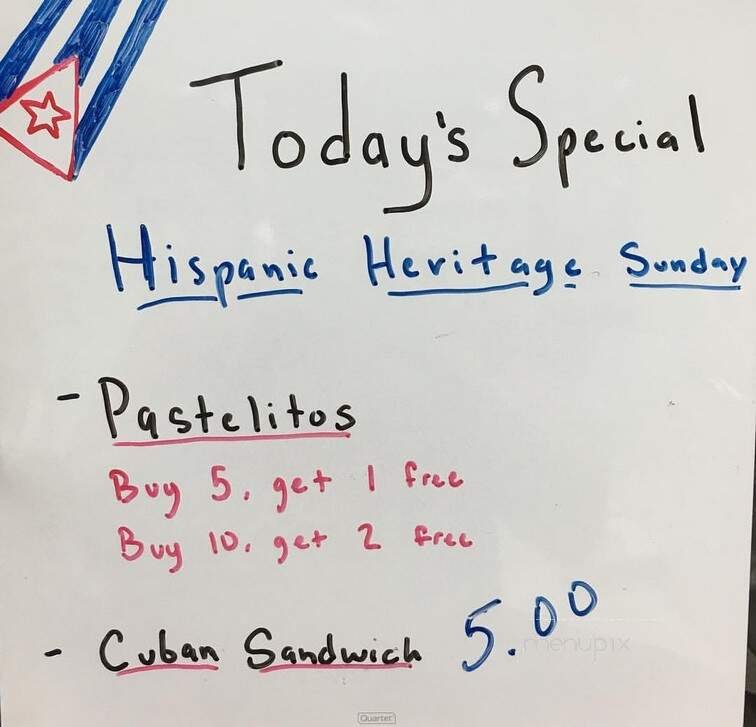 Today's Special
Hispanic Heritage Sunday
- Pastelitos
Buy 5, get 1 free
Buy 10, get 2 free
- Cuban Sandwich 5.00
menupix
Quartet